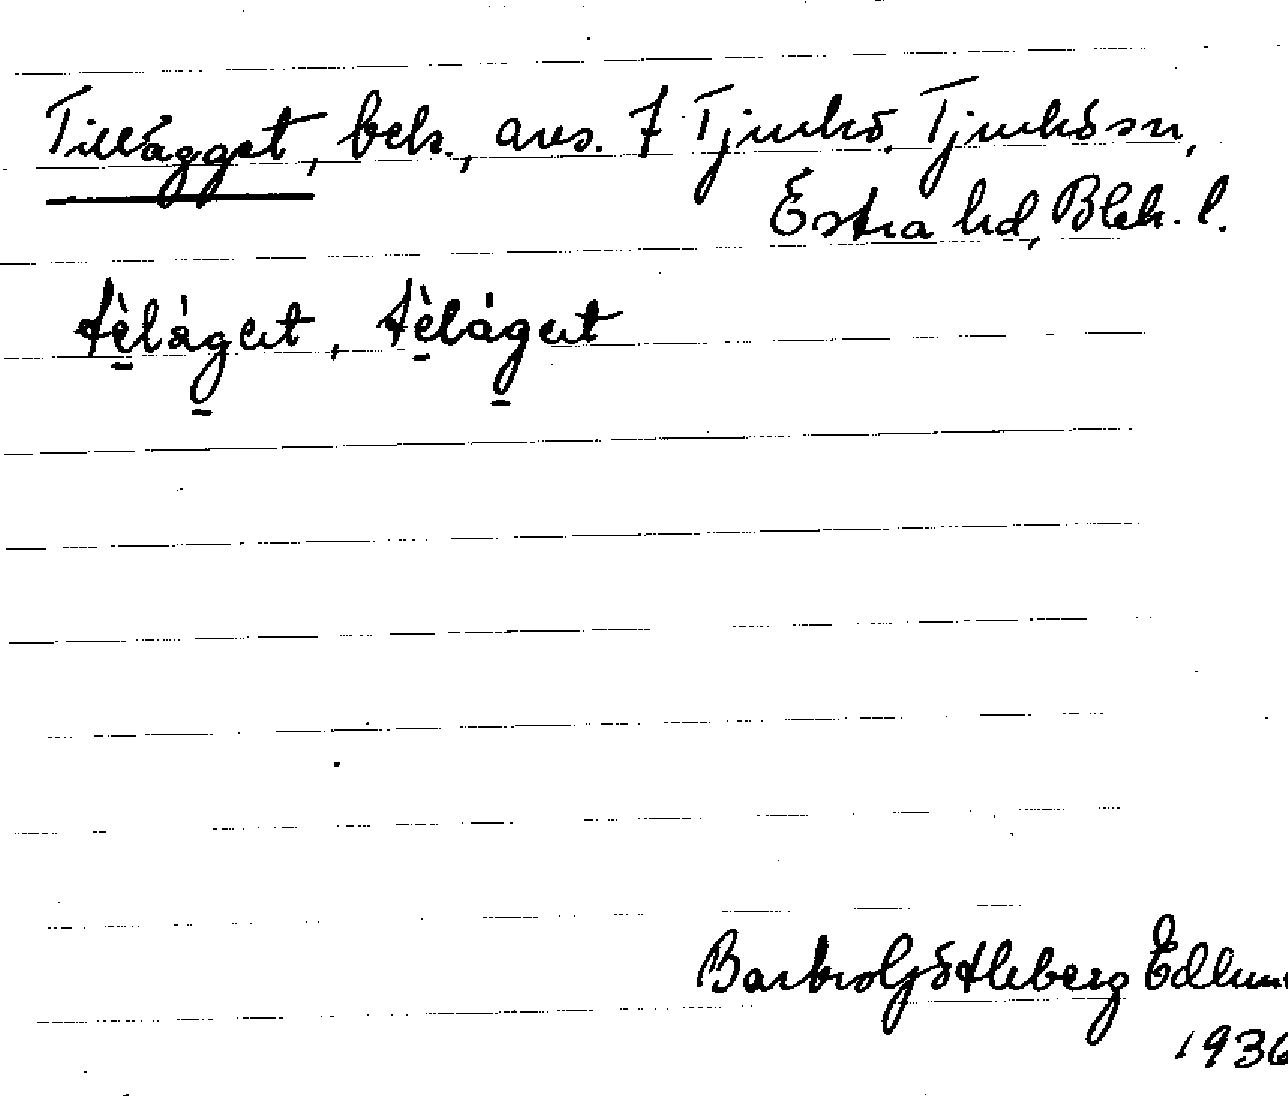 Tillägget, beb., avs. 7 Tjurkö, Tjurkö sn,
Östra hd, Blek. l.
tèláget, tèláget
Barbro Götleberg Edlund
1936